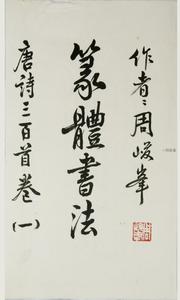 作者：周峻峯
篆體書法
唐詩三百首卷（一）